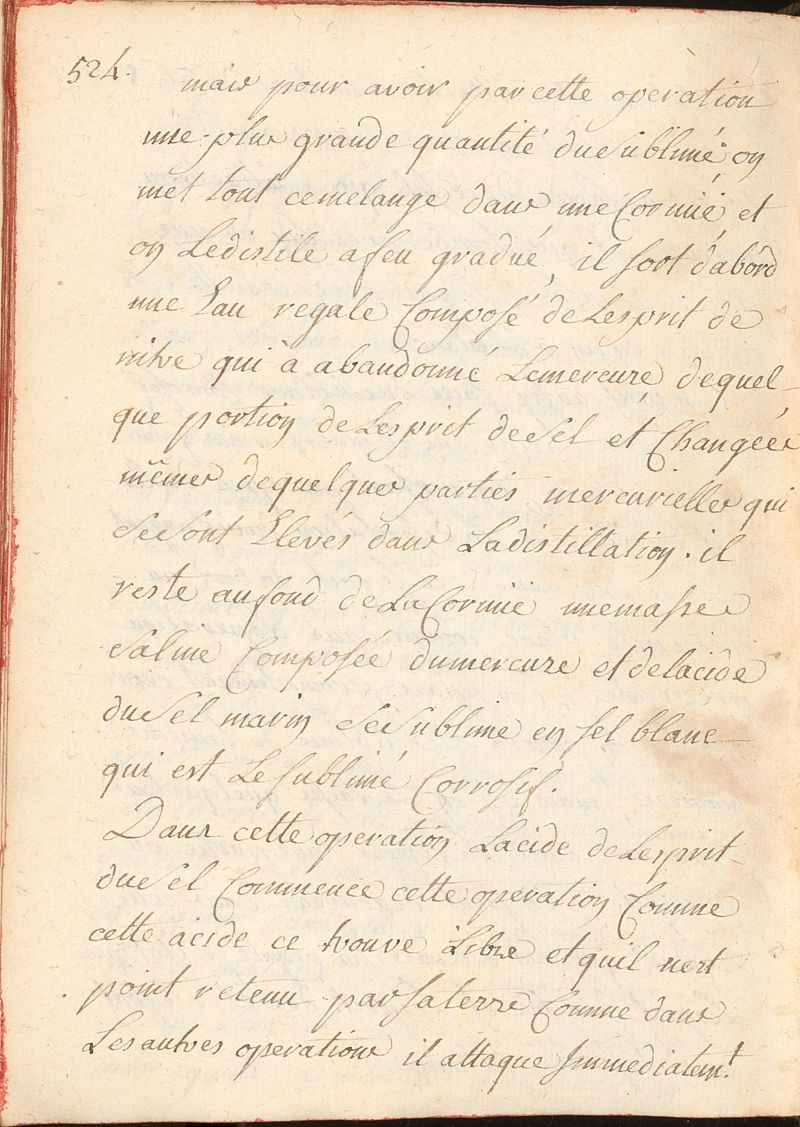 524.
mais pour avoir par cette operation
une plus grande quantité du Sublimé, on
met tout ce melange dans une Cornüe, et
on Le distile a feu gradué, il sort d'abord
une Eau regale Composé de Lesprit de
nitre qui à abandonné Le mercure, de quel-
que portion de Lesprit de Sel et Changées
mêmes de quelques parties mercurielles qui
Se Sont Elevés dans La distillation. il
reste au fond de La Cornue une masse
Saline Composée du mercure et de lacide
du Sel marin Se Sublime en sel blanc
qui est Le Sublimé Corrosif.
Dans cette operation Lacide de Lesprit
du Sel Commence cette operation Comme
cette acide ce trouve Libre et quil nest
point retenu par sa terre Comme dans
Les autres operations il attaque Immediatemt.